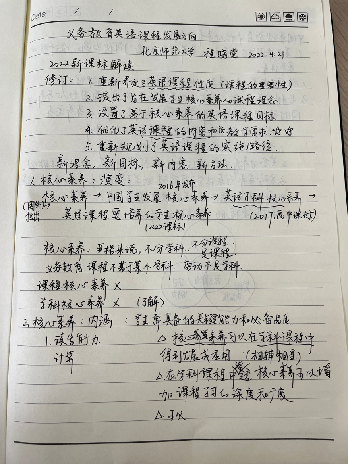 义务教育英语课程发展方向
北京师范大学 程晓堂 2022.4.21
2022新课标解读
修订: 1. 重新界定了英语课程性质(课程的重要性)
2. 提出了旨在发展学生核心素养的课程理念
3. 设置了基于核心素养的英语课程目标
4. 优化了英语课程的内容和
5. 重新规划了英语课程的实施路径.
新理念、新目标、新内容、新方法.
1. 核心素养: 演变:
2016年发布
核心素养 → 中国学生发展核心素养 → 英语学科核心素养 →
英语课程要培养的学生核心素养 (2017版高中课标)
(2022课标)
核心素养, 严格来说, 不分学科, 不分课程
义务教育课程不等于某个学科 劳动不是学科
课程核心素养 ×
学科核心素养 × (了解)
2. 核心素养: 内涵: 必备品格
1. 语言能力 △ 核心素养可以在学科课程中
计算 得到发展或 (相辅相成)
△ 在学科课程中 核心素养可以增
加课程的深度和广度
△ 可以